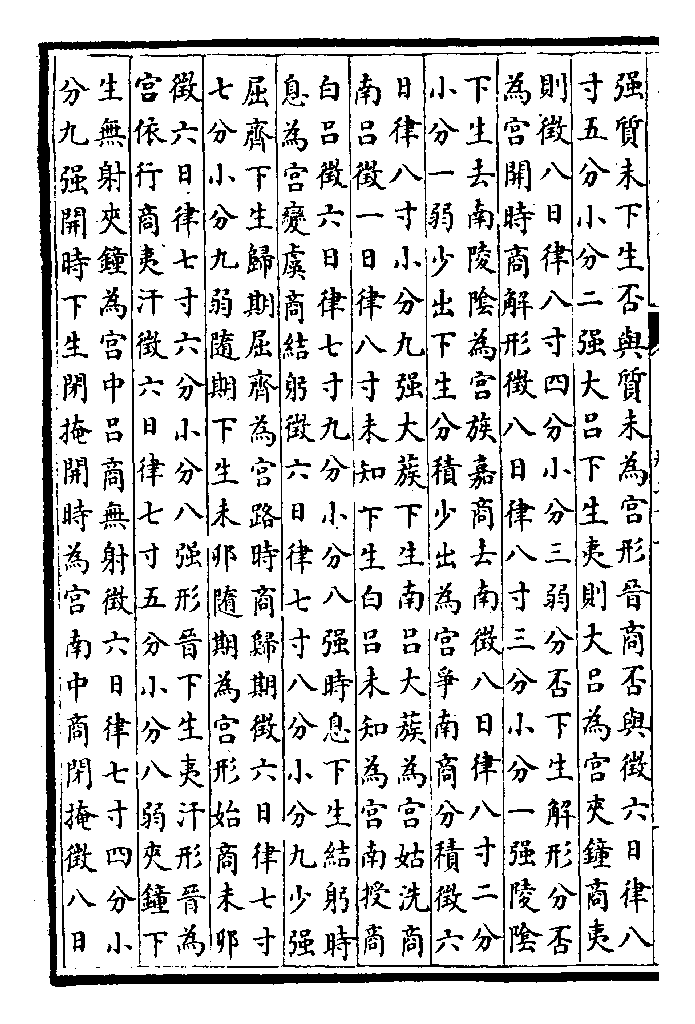 强質未下生否與質未為宮形晉商否與徵六日律八
寸五分小分二强大呂下生夷則大呂為宮夾鐘商夷
則徵八日律八寸四分小分三弱分否下生解形分否
為宮開時商解形徵八日律八寸三分小分一强陵陰
下生去南陵陰為宮族嘉商去南徵八日律八寸二分
小分一弱少出下生分積少出為宮爭南商分積徵六
日律八寸小分九强大蔟下生南呂大蔟為宮姑洗商
南呂徵一日律八寸未知下生白呂未知為宮南授商
白呂徵六日律七寸九分小分八强時息下生結躬時
息為宮變虞商結躬徵六日律七寸八分小分九少强
屈齊下生歸期屈齊為宮路時商歸期徵六日律七寸
七分小分九弱隨期下生未卯隨期為宮形始商未卯
徵六日律七寸六分小分八强形晉下生夷汗形晉為
宮依行商夷汗徵六日律七寸五分小分八弱夾鐘下
生無射夾鐘為宮中呂商無射徵六日律七寸四分小
分九强開時下生閉掩開時為宮南中商閉掩徵八日